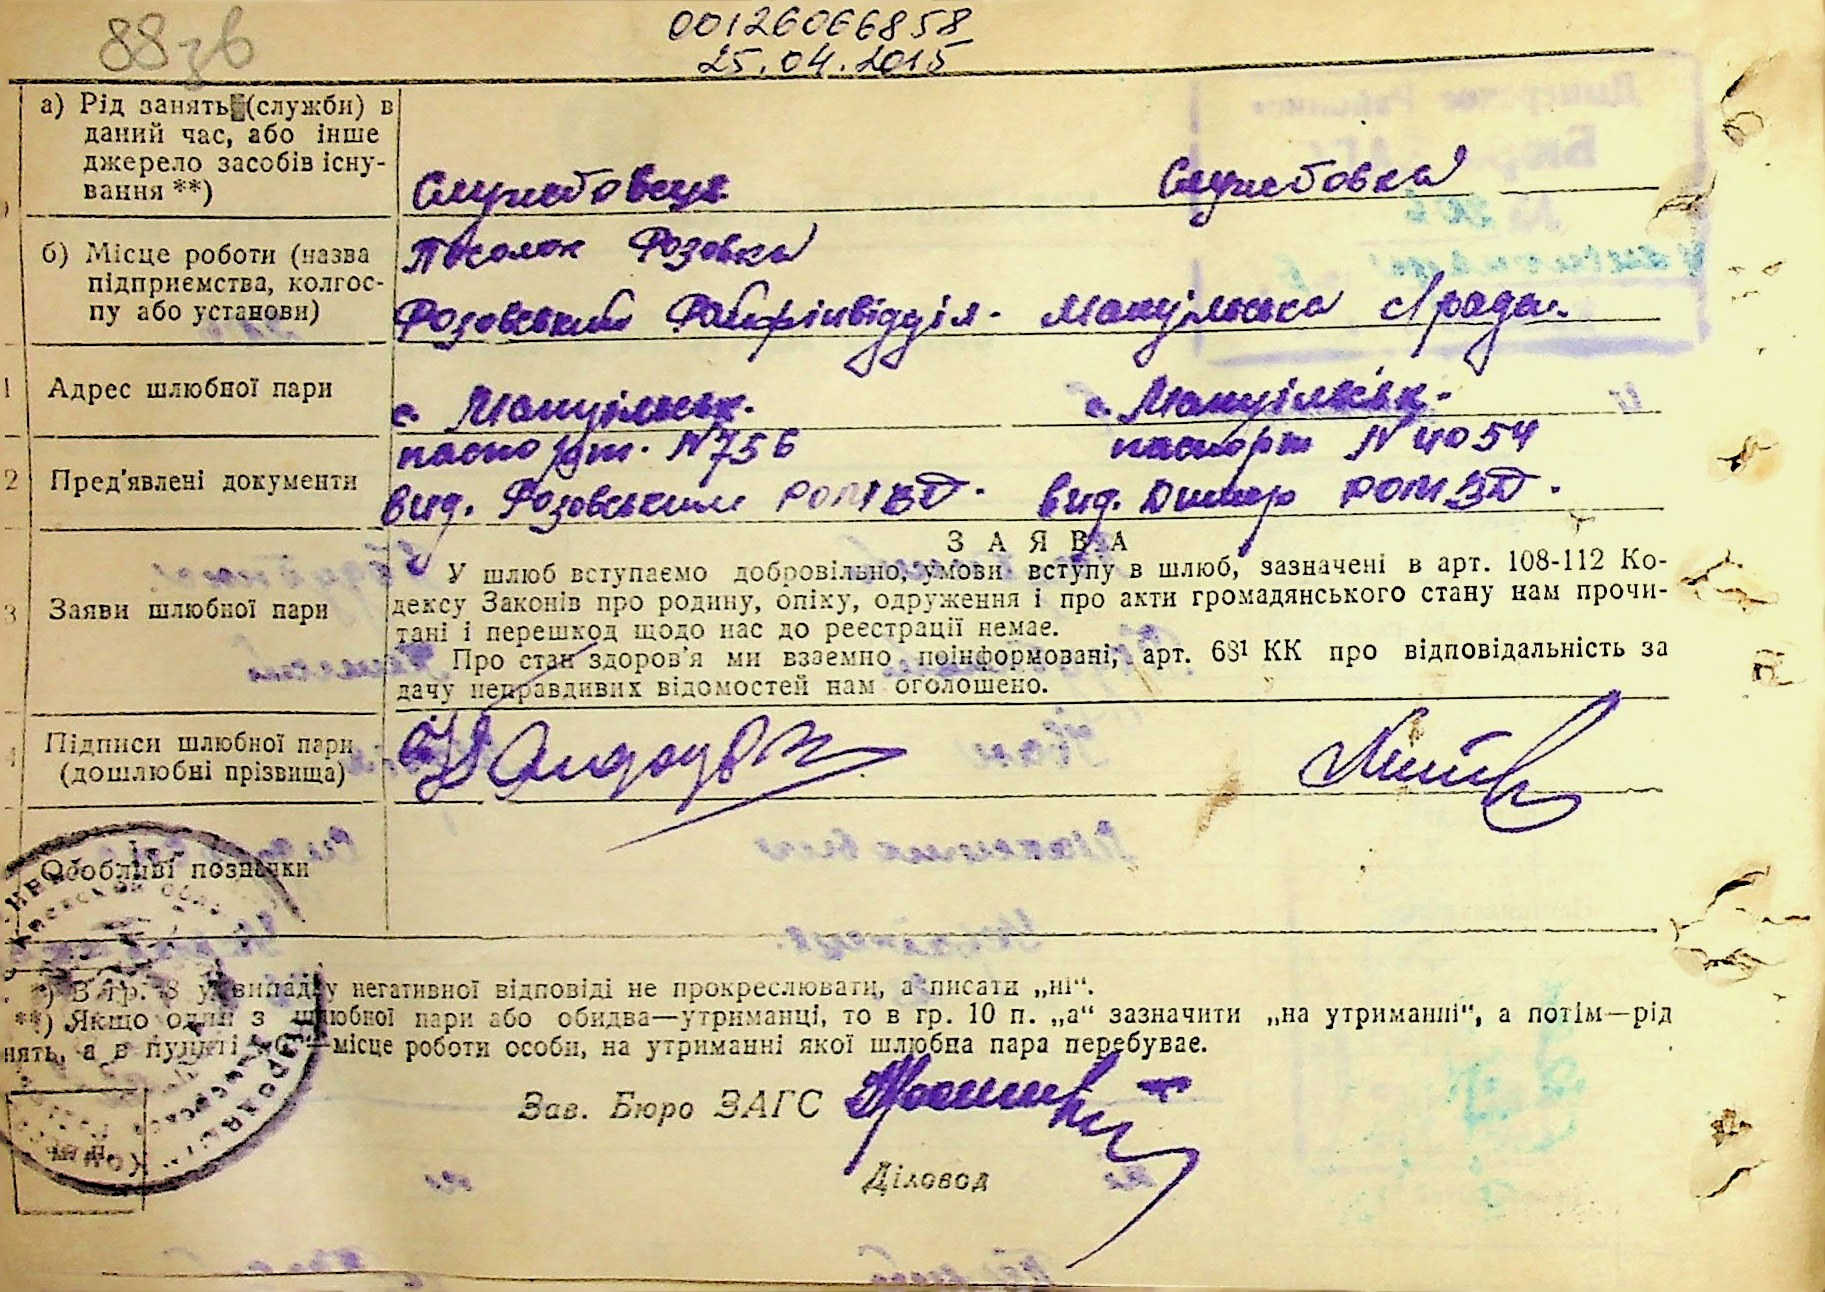 88зв
00126066858
25.04.2015
а) Рід занять (служби) в
даний час, або інше
джерело засобів існу-
вання **)
Службовець Службовка
б) Місце роботи (назва
підприємства, колгос-
пу або установи)
Посолок Розовка
Розовський Райфінвідділ. Мануільська с/рада.
Адрес шлюбної пари
с. Мануільськ. с. Мануільськ.
2 Пред'явлені документи
паспорт. N 756 паспорт N 4054
вид. Розовським РОМ ВД. вид. Димер РОМ ВД.
З А Я В А
3 Заяви шлюбної пари
У шлюб вступаємо добровільно, умови вступу в шлюб, зазначені в арт. 108-112 Ко-
дексу Законів про родину, опіку, одруження і про акти громадянського стану нам прочи-
тані і перешкод щодо нас до реєстрації немає.
Про стан здоров'я ми взаємно поінформовані, арт. 68¹ КК про відповідальність за
дачу неправдивих відомостей нам оголошено.
Підписи шлюбної пари
(дошлюбні прізвища)
Особливі позначки
*) В гр. 8 у випадку негативної відповіді не прокреслювати, а писати „ні“.
**) Якщо один з шлюбної пари або обидва—утриманці, то в гр. 10 п. „а“ зазначити „на утриманні“, а потім—рід
нять, а в пункті місце роботи особи, на утриманні якої шлюбна пара перебуває.
Зав. Бюро ЗАГС
Діловод